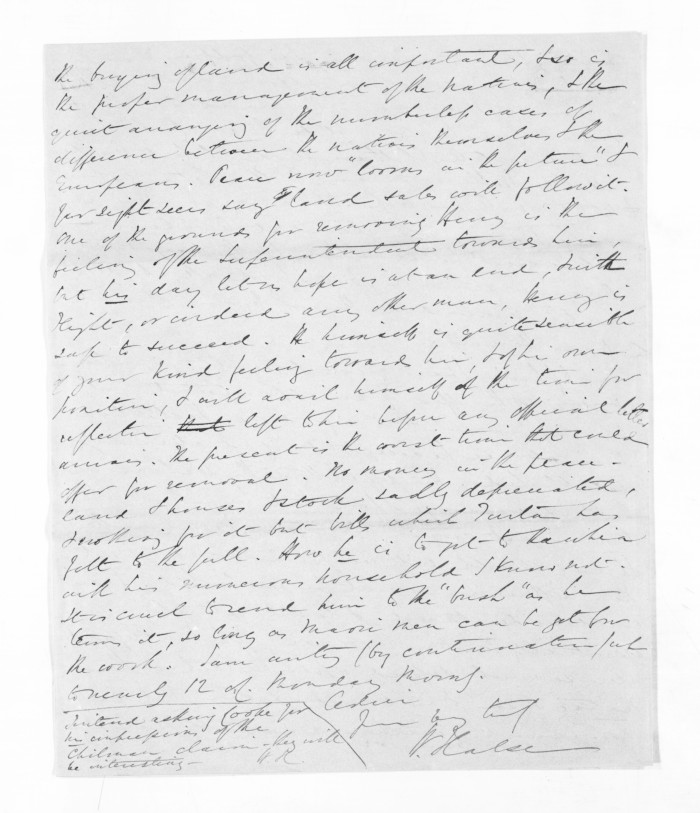 the buying of land is all important, & so is
the proper management of the natives, & the
quiet arranging of the numberless cases of
difference between the natives themselves & the
Europeans. Peace now "looms in the future" &
far sight seers say land sales will follow it.
One of the grounds for removing Henry is the
feeling of the Superintendent towards him,
but his day let us hope is at an end, & with
Wright, or indeed any other man, Henry is
safe to succeed. He himself is quite sensible
of your kind feeling towards him, & of his own
position, & will avail himself of the time for
reflection left to him before any official letter
arrives. The present is the worst time that could
offer for removal. No money in the place -
land & houses & stock sadly depreciated,
& nothing for it but bills which Turton has
felt to the full. How he is to get to Kawhia
with his numerous household I know not.
It is cruel to send him to the "bush" as he
terms it, so long as Maori men can be got for
the work. I am writing (by continuation) at
to nearly 12 of Monday Morng.
Intend asking Cooke for
his impressions of the
Chilman claim - they will
be interesting -
Yrs very truly
W. Halse